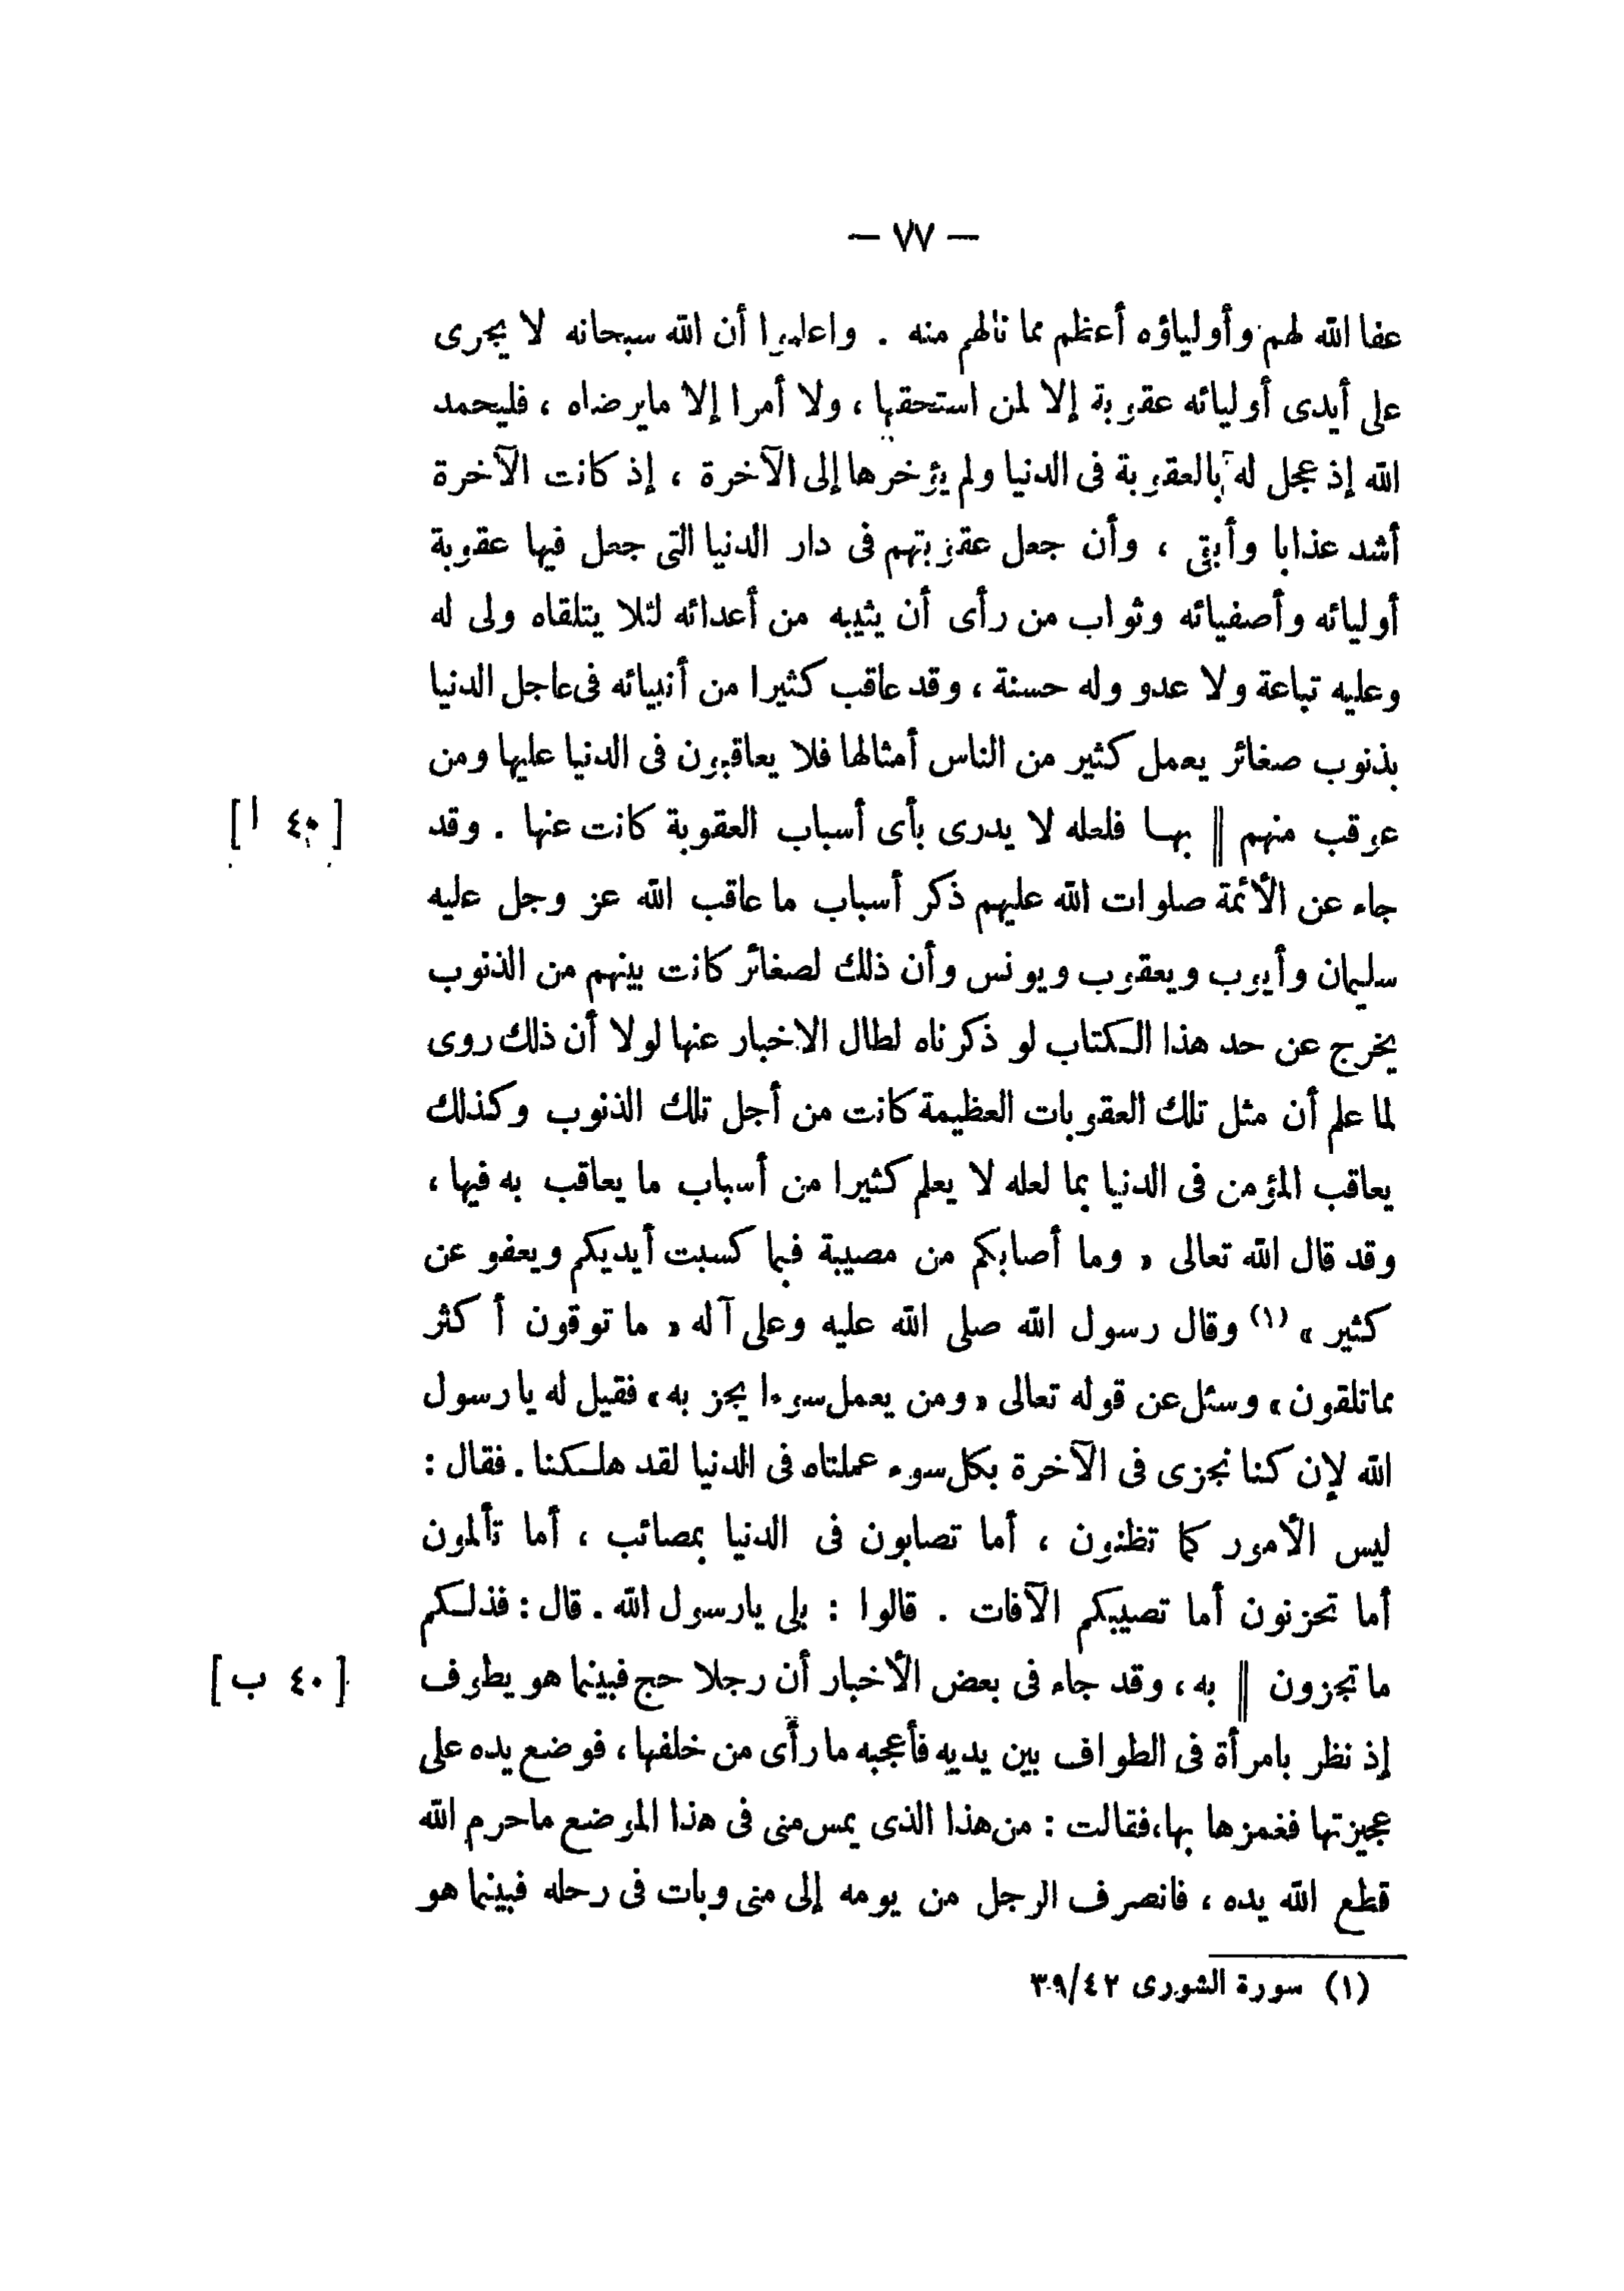 — ٧٧ —
عفا الله لهم وأولياؤه أعظم مما نالهم منه . واعلموا أن الله سبحانه لا يجرى
على أيدى أوليائه عقوبة إلا لمن استحقها ، ولا أمرا إلا مايرضاه ، فليحمد
الله إذ عجل له بالعقوبة فى الدنيا ولم يؤخرها إلى الآخرة ، إذ كانت الآخرة
أشد عذابا وأبقى ، وأن جعل عقوبتهم فى دار الدنيا التى جعل فيها عقوبة
أوليائه وأصفيائه وثواب من رأى أن يثيبه من أعدائه لئلا يتلقاه ولى له
وعليه تباعة ولا عدو وله حسنة ، وقد عاقب كثيرا من أنبيائه فى عاجل الدنيا
بذنوب صغائر يعمل كثير من الناس أمثالها فلا يعاقبون فى الدنيا عليها ومن
عوقب منهم || بها فلعله لا يدرى بأى أسباب العقوبة كانت عنها . وقد [ ٤٠ ا ]
جاء عن الأئمة صلوات الله عليهم ذكر أسباب ما عاقب الله عز وجل عليه
سليمان وأيوب ويعقوب ويونس وأن ذلك لصغائر كانت بينهم من الذنوب
يخرج عن حد هذا الكتاب لو ذكرناه لطال الاخبار عنها لولا أن ذلك روى
لما علم أن مثل تلك العقوبات العظيمة كانت من أجل تلك الذنوب وكذلك
يعاقب المؤمن فى الدنيا بما لعله لا يعلم كثيرا من أسباب ما يعاقب به فيها ،
وقد قال الله تعالى « وما أصابكم من مصيبة فبما كسبت أيديكم ويعفو عن
كثير » (١) وقال رسول الله صلى الله عليه وعلى آله « ما توقون أكثر
مماتلقون » وسئل عن قوله تعالى « ومن يعمل سوءا يجز به » فقيل له يا رسول
الله لإن كنا نجزى فى الآخرة بكل سوء عملناه فى الدنيا لقد هلكنا . فقال :
ليس الأمور كما تظنون ، أما تصابون فى الدنيا بمصائب ، أما تألمون
أما تحزنون أما تصيبكم الآفات . قالوا : بلى يارسول الله . قال : فذلكم
ما تجزون || به ، وقد جاء فى بعض الأخبار أن رجلا حج فبينما هو يطوف [ ٤٠ ب ]
إذ نظر بامرأة فى الطواف بين يديه فأعجبه ما رأى من خلفها ، فوضع يده على
عجيزتها فغمزها بها ، فقالت : من هذا الذى يمس منى فى هذا الموضع ماحرم الله
قطع الله يده ، فانصرف الرجل من يومه إلى منى وبات فى رحله فبينما هو
(١) سورة الشورى ٣٠٩/٤٢